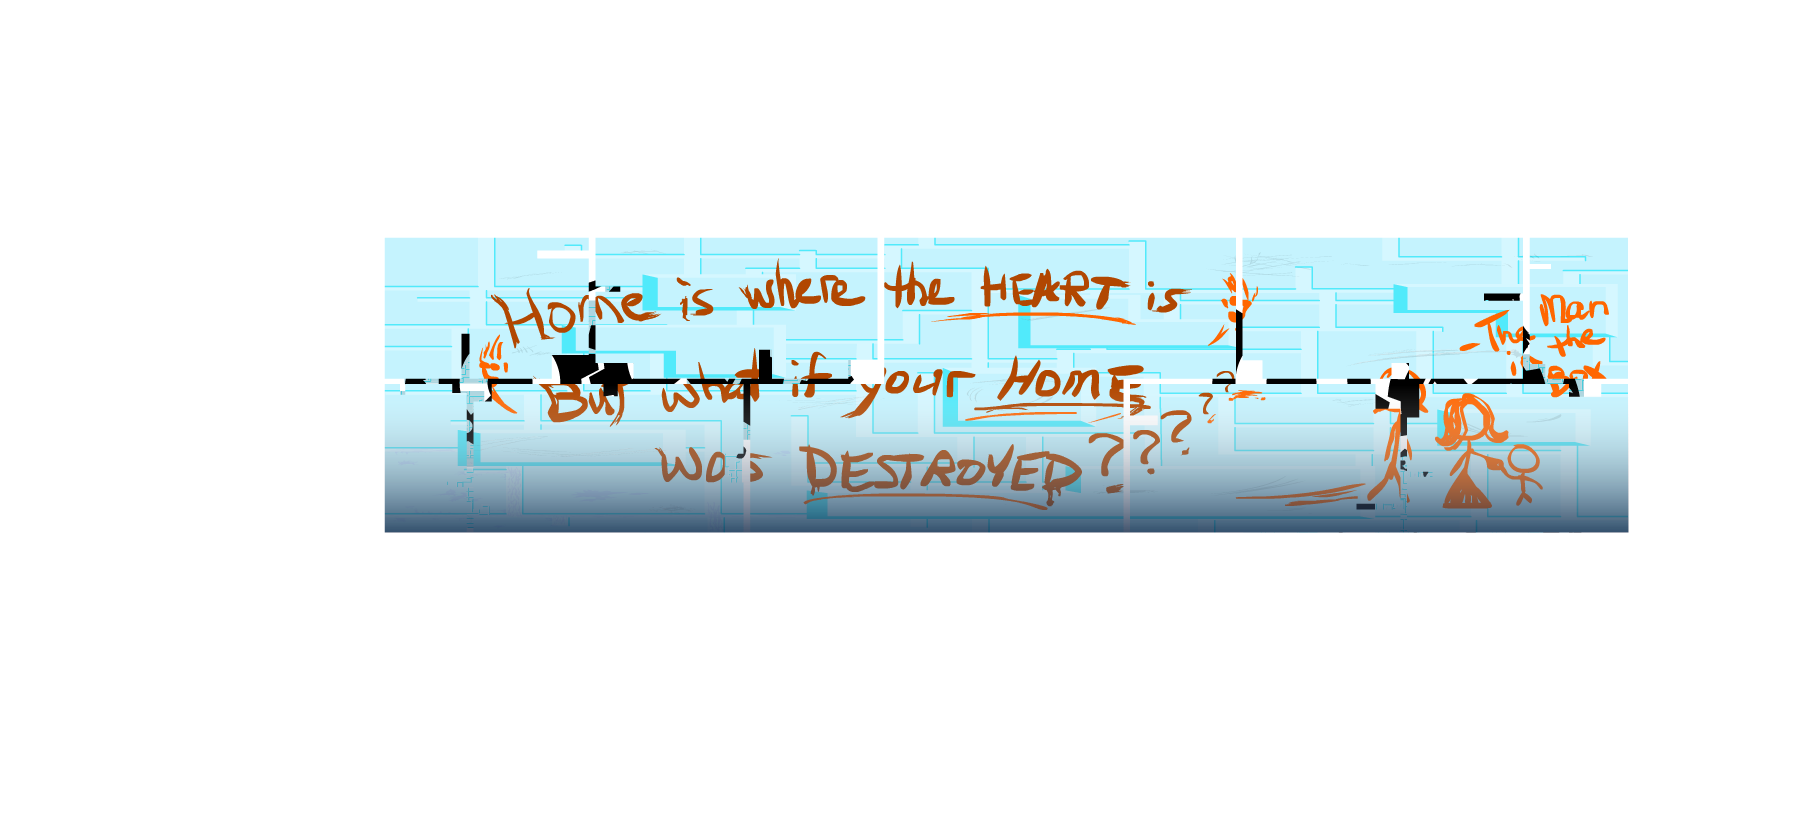 Home is where the HEART is
But what if your HOME ?
was DESTROYED????
- The Man
in the
Box